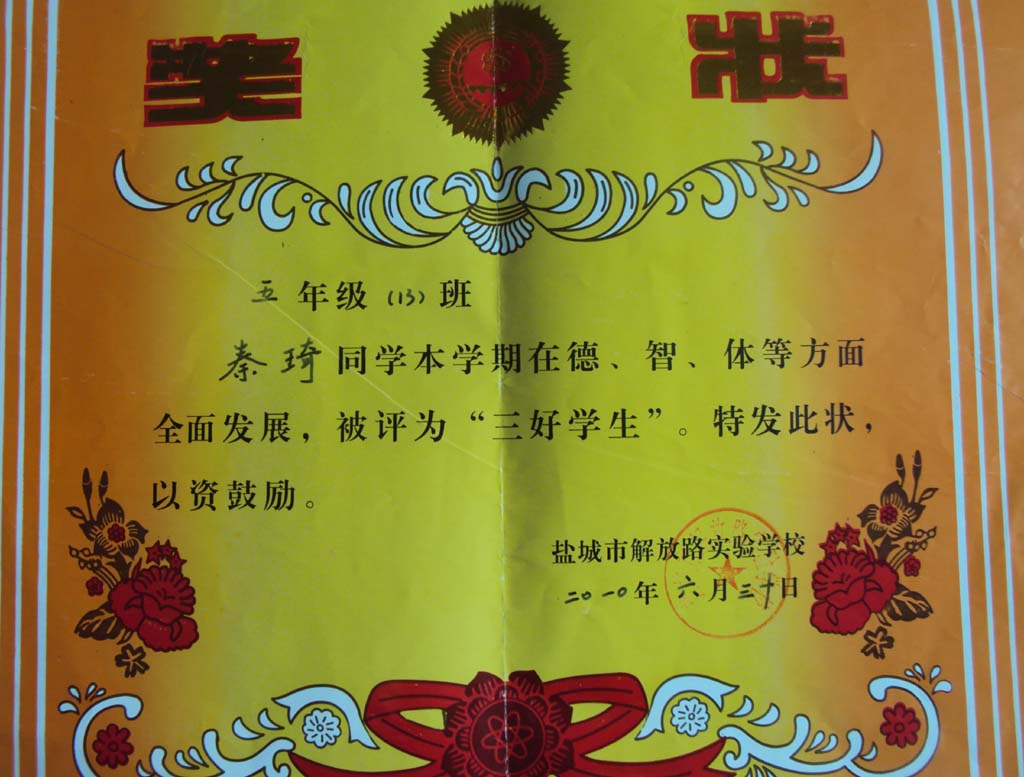 奖状
五年级（13）班
秦琦同学本学期在德、智、体等方面
全面发展，被评为“三好学生”。特发此状，
以资鼓励。
盐城市解放路实验学校
二〇一〇年六月三十日